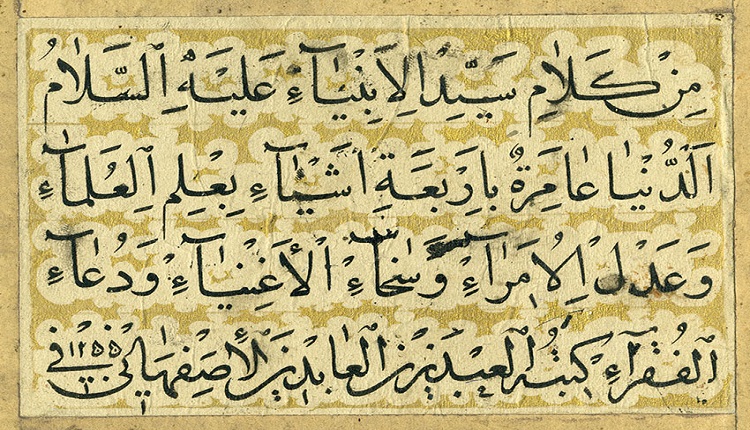 مِنْ كَلَامِ سَيِّدِ الْاَنْبِيَاءِ عَلَيْهِ السَّلَامُ
اَلدُّنْيَا عَامِرَةٌ بِاَرْبَعَةِ اَشْيَاءٍ بِعِلْمِ الْعُلَمَاءِ
وَعَدْلِ الْاُمَرَاءِ وَسَخَاءِ الْأَغْنِيَاءِ وَدُعَاءِ
الْفُقَرَاءِ كتبه العبد زين العابدين الأصفهاني فی ١٢٥٥